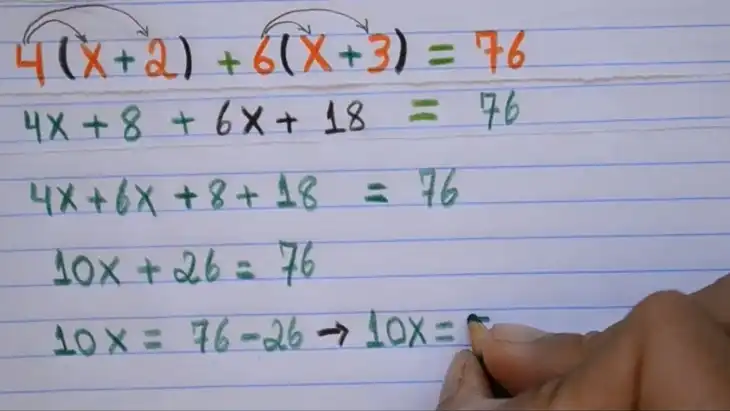 4(x+2) + 6(x+3) = 76
4x + 8 + 6x + 18 = 76
4x + 6x + 8 + 18 = 76
10x + 26 = 76
10x = 76 - 26 → 10x =